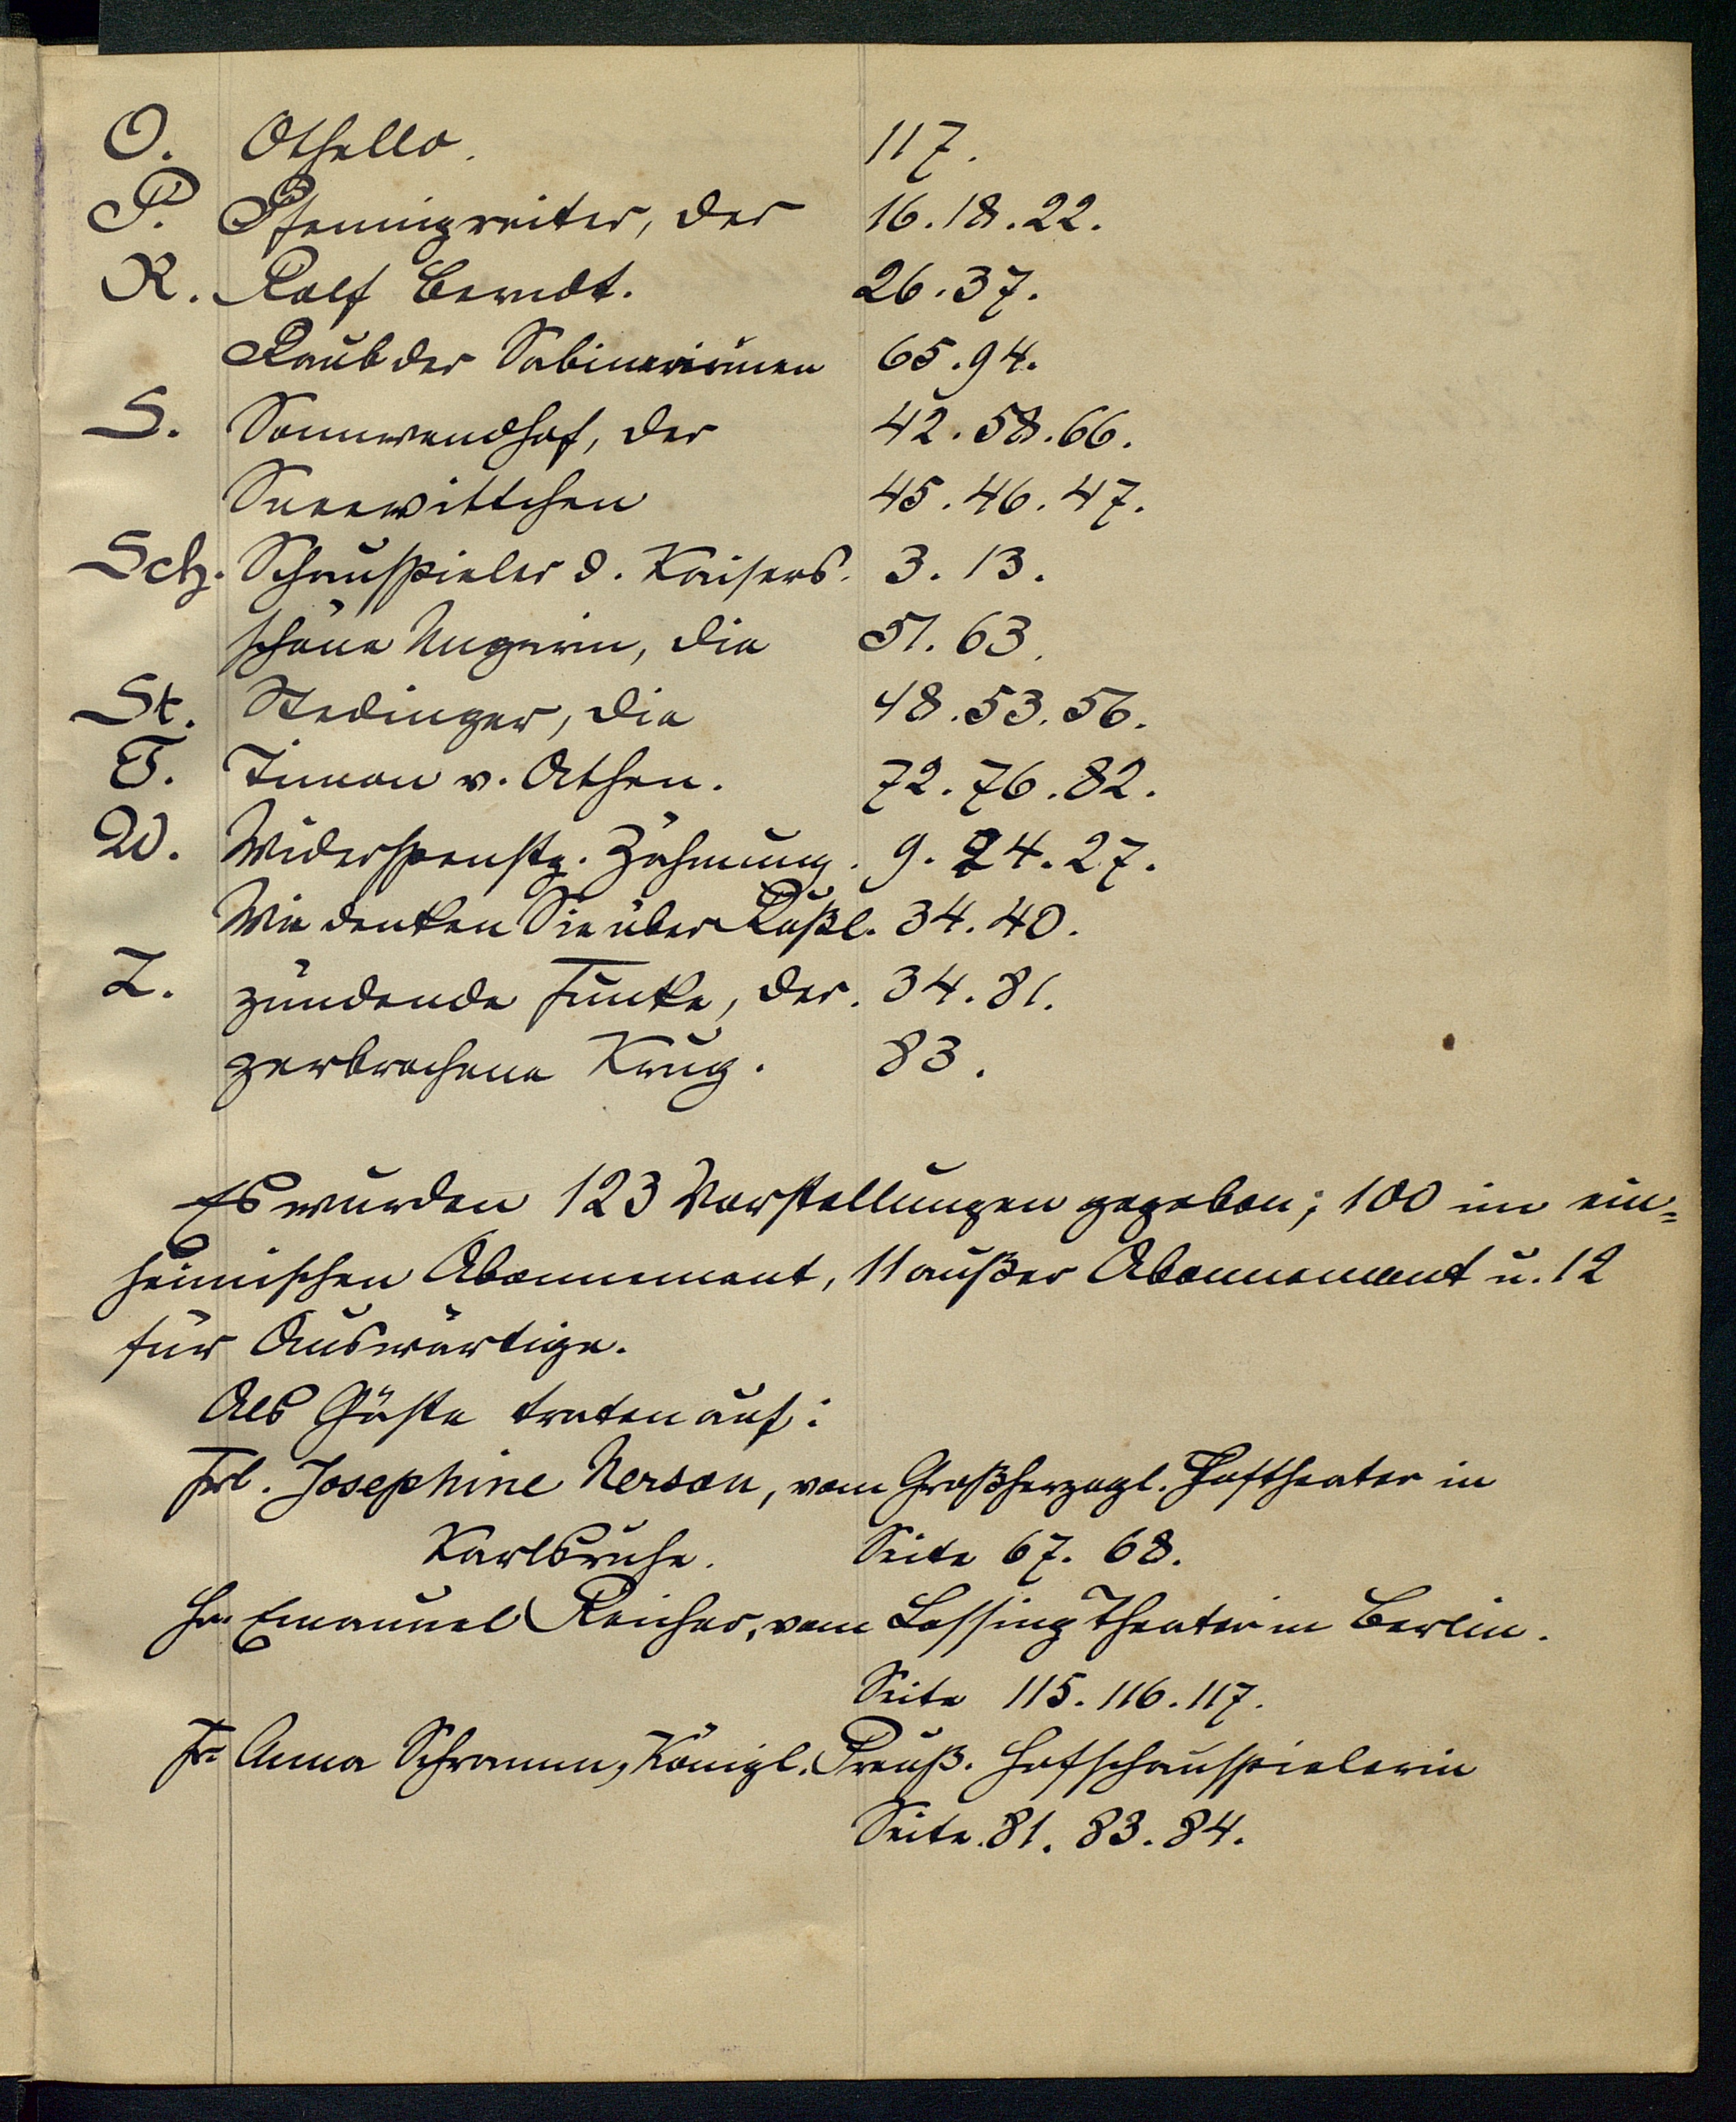 O. Othello. 117.
P. Pfennigreiter, der 16.18.22.
R. Rolf Berndt. 26.37.
Raub der Sabinerinnen 65.94.
S. Sonnwendhof, der 42.58.66.
Sneewittchen 45.46.47.
Sch. Schauspieler d. Kaisers. 3.13.
schöne Ungarin, die 51.63.
St. Stedinger, die 48.53.56.
T. Timon v. Athen. 72.76.82.
W. Widerspenstg. Zähmung. 9.24.27.
Wie denken Sie über Rußl. 34.40.
Z. zündende Funke, der. 34.81.
zerbrochene Krug. 83.
Es wurden 123 Vorstellungen gegeben; 100 im ein=
heimischen Abonnement, 11 außer Abonnement u. 12
für Auswärtige.
Als Gäste traten auf:
Frl. Josephine Nerson, vom Großherzogl. Hoftheater in
Karlsruhe. Seite 67. 68.
Hr. Emanuel Reicher, vom Lessing Theater in Berlin.
Seite 115.116.117.
Fr. Anna Schramm, Königl. Preuß. Hofschauspielerin
Seite. 81. 83. 84.